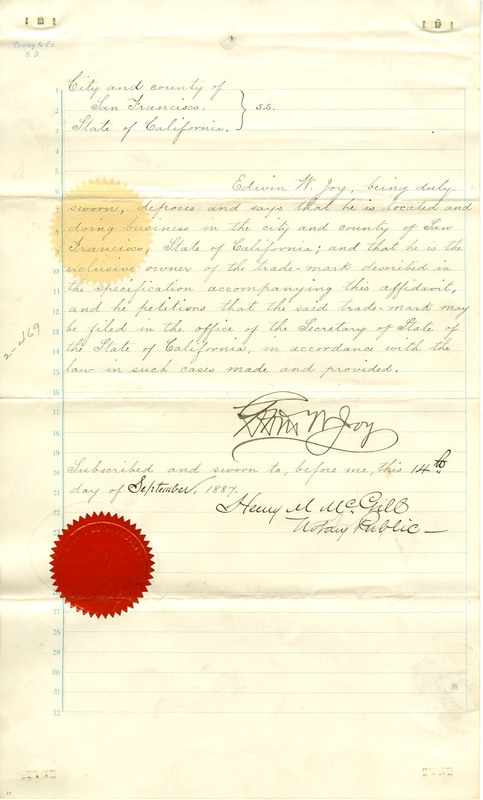 City and county of
San Francisco,
State of California.
} s.s.
Edwin W. Joy, being duly
sworn, deposes and says that he is located and
doing business in the city and county of San
Francisco, State of California; and that he is the
exclusive owner of the trade-mark described in
the specification accompanying this affidavit,
and he petitions that the said trade-mark may
be filed in the office of the Secretary of State of
the State of California, in accordance with the
law in such cases made and provided.
2-469
Edwin W. Joy
Subscribed and sworn to, before me, this 14th
day of September, 1887.
Henry M. McGill
Notary Public
1
2
3
4
5
6
7
8
9
10
11
12
13
14
15
16
17
18
19
20
21
22
27
28
29
30
31
32